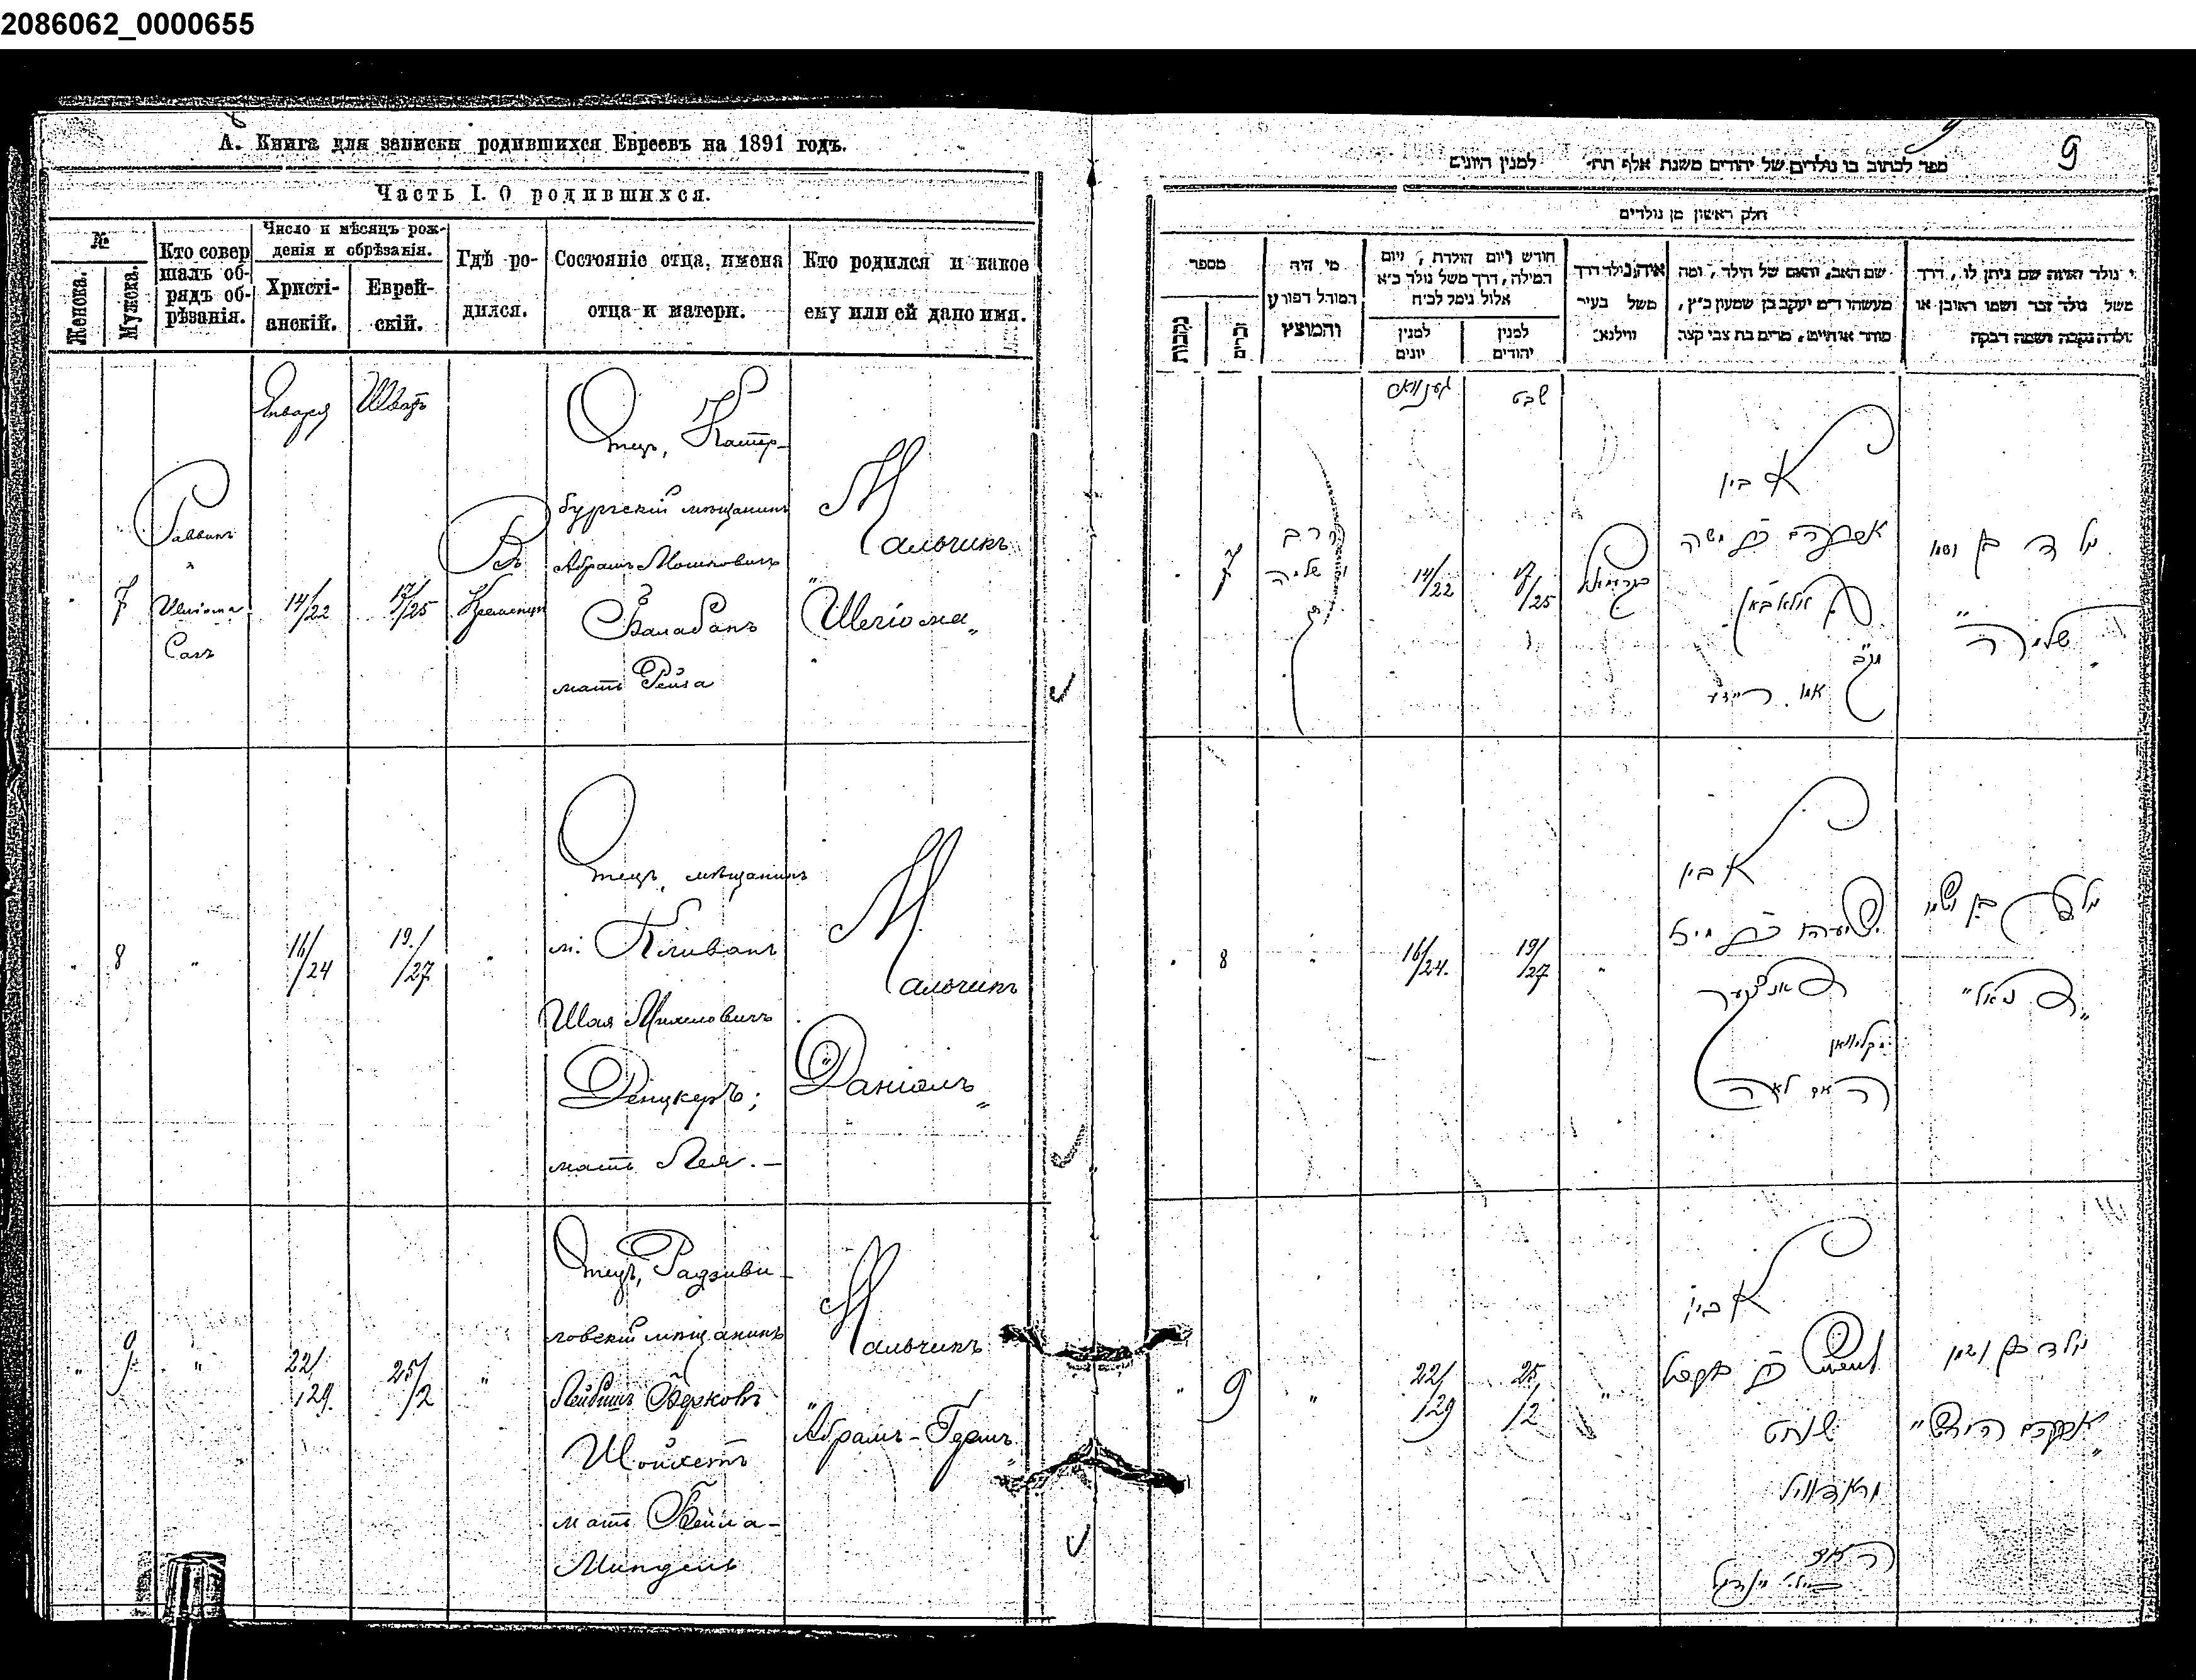 2086062_0000655
А. Книга для записки родившихся Евреевъ на 1891 годъ.
Часть I. О родившихся.
№
Женска.
Мужска.
Кто совер
шалъ об-
рядъ об-
рѣзанія.
Число и мѣсяцъ рож-
денія и обрѣзанія.
Христі-
анскій.
Еврей-
скій.
Гдѣ ро-
дился.
Состояніе отца, имена
отца и матери.
Кто родился и какое
ему или ей дано имя.
Января
Шватъ
7
Раввинъ
14/22
17/25
Въ
Кременцѣ
Отецъ,
бургскій мѣщанинъ
Абрамъ Мошковичъ
Балабанъ
мать Рейза
Мальчикъ
8
"
16/24
19/27
"
Отецъ, мѣщанинъ
м. Кливань
Шая Михелевичъ
Денцкеръ;
мать Лея. –
Мальчикъ
"Даніель"
"
9
"
22/29
25/2
"
Отецъ, Радзиви-
ловскій мѣщанинъ
Лейбишъ Берковъ
Шойхетъ
мать Бейла-
Миндель
Мальчикъ
"Абрамъ-Гершъ"
9
ספר לכתוב בו נולדים של יהודים משנת אלף תת׳ למנין היונים
חלק ראשון מן נולדים
מספר
נקבות
זכרים
מי היה
המוהל הפורע
והמוצץ
חודש ויום הולדת, ויום
המילה, דרך משל נולד כ״א
אלול נימל לכ״ח
למנין
יונים
למנין
יהודים
איה נולד דרך
משל בעיר
ווילנא:
שם האב, והאם של הילד, ומה
מעשהו ד״מ יעקב בן שמעון כ״ץ,
סוחר או חייט, מרים בת צבי קצב
מי נולד ואיזה שם ניתן לו, דרך
משל נולד זכר ושמו ראובן או
נולדה נקבה ושמה רבקה
שבט
7
הרב
14/22
17/25
אביו
אברהם בן משה
נולד בן ושמו
8
"
16/24
19/27
"
אביו
ישעיהו בן
דאנצקער
האם לאה
נולד בן ושמו
"דניאל"
"
9
"
22/29
25/2
"
אביו
שוחט
נולד בן ושמו
"אברהם הירש"